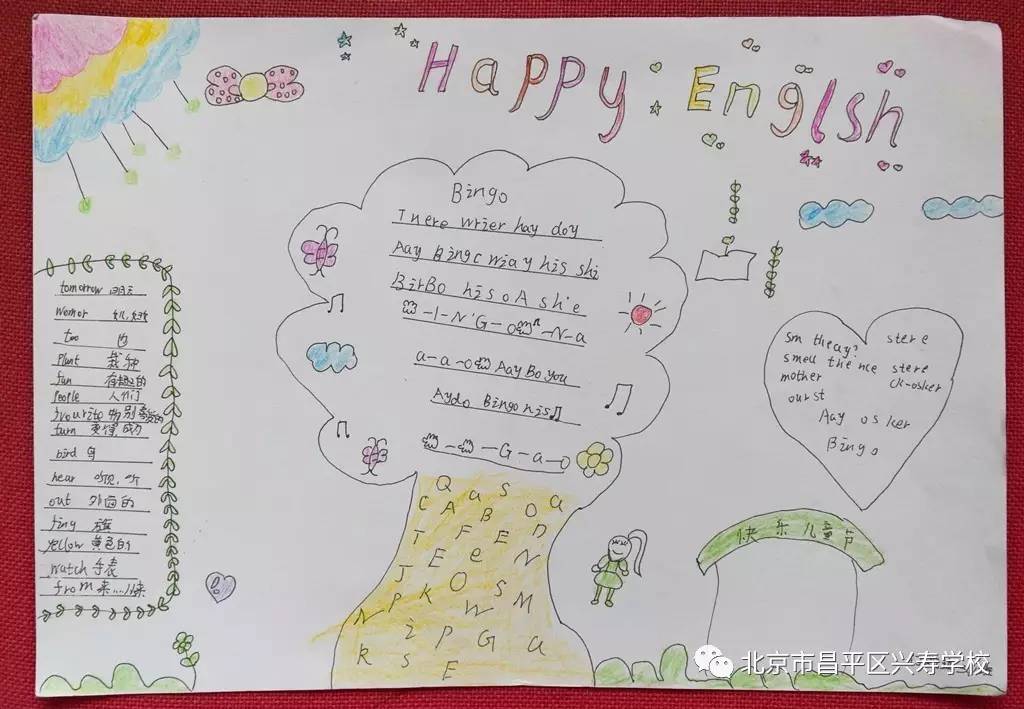 Happy Englsh
Bingo
There wrier hay doy
Aay Bingc wiay his shi
BirBo his oA shie
-I-N'G-o -N-a
a-a-o Aay Bo you
Aydo Bingo his
-G-a-o
tomorrow 明天
Womor
too 的
Plant 栽种
fan 有趣的
People 人们
fvourito 特别喜爱的
turn 变得,成为
bird 鸟
hear 听见,听
out 外面的
fing
yellow 黄色的
watch 手表
from 来....从来
sm theay? stere
smell the nce stere
mother ck-osker
ourst
Aay osker
Bingo
Q a S a
C A B O
T F E D
E e N
J O S
P K W M
N i P G a
k s E
快乐儿童节
北京市昌平区兴寿学校